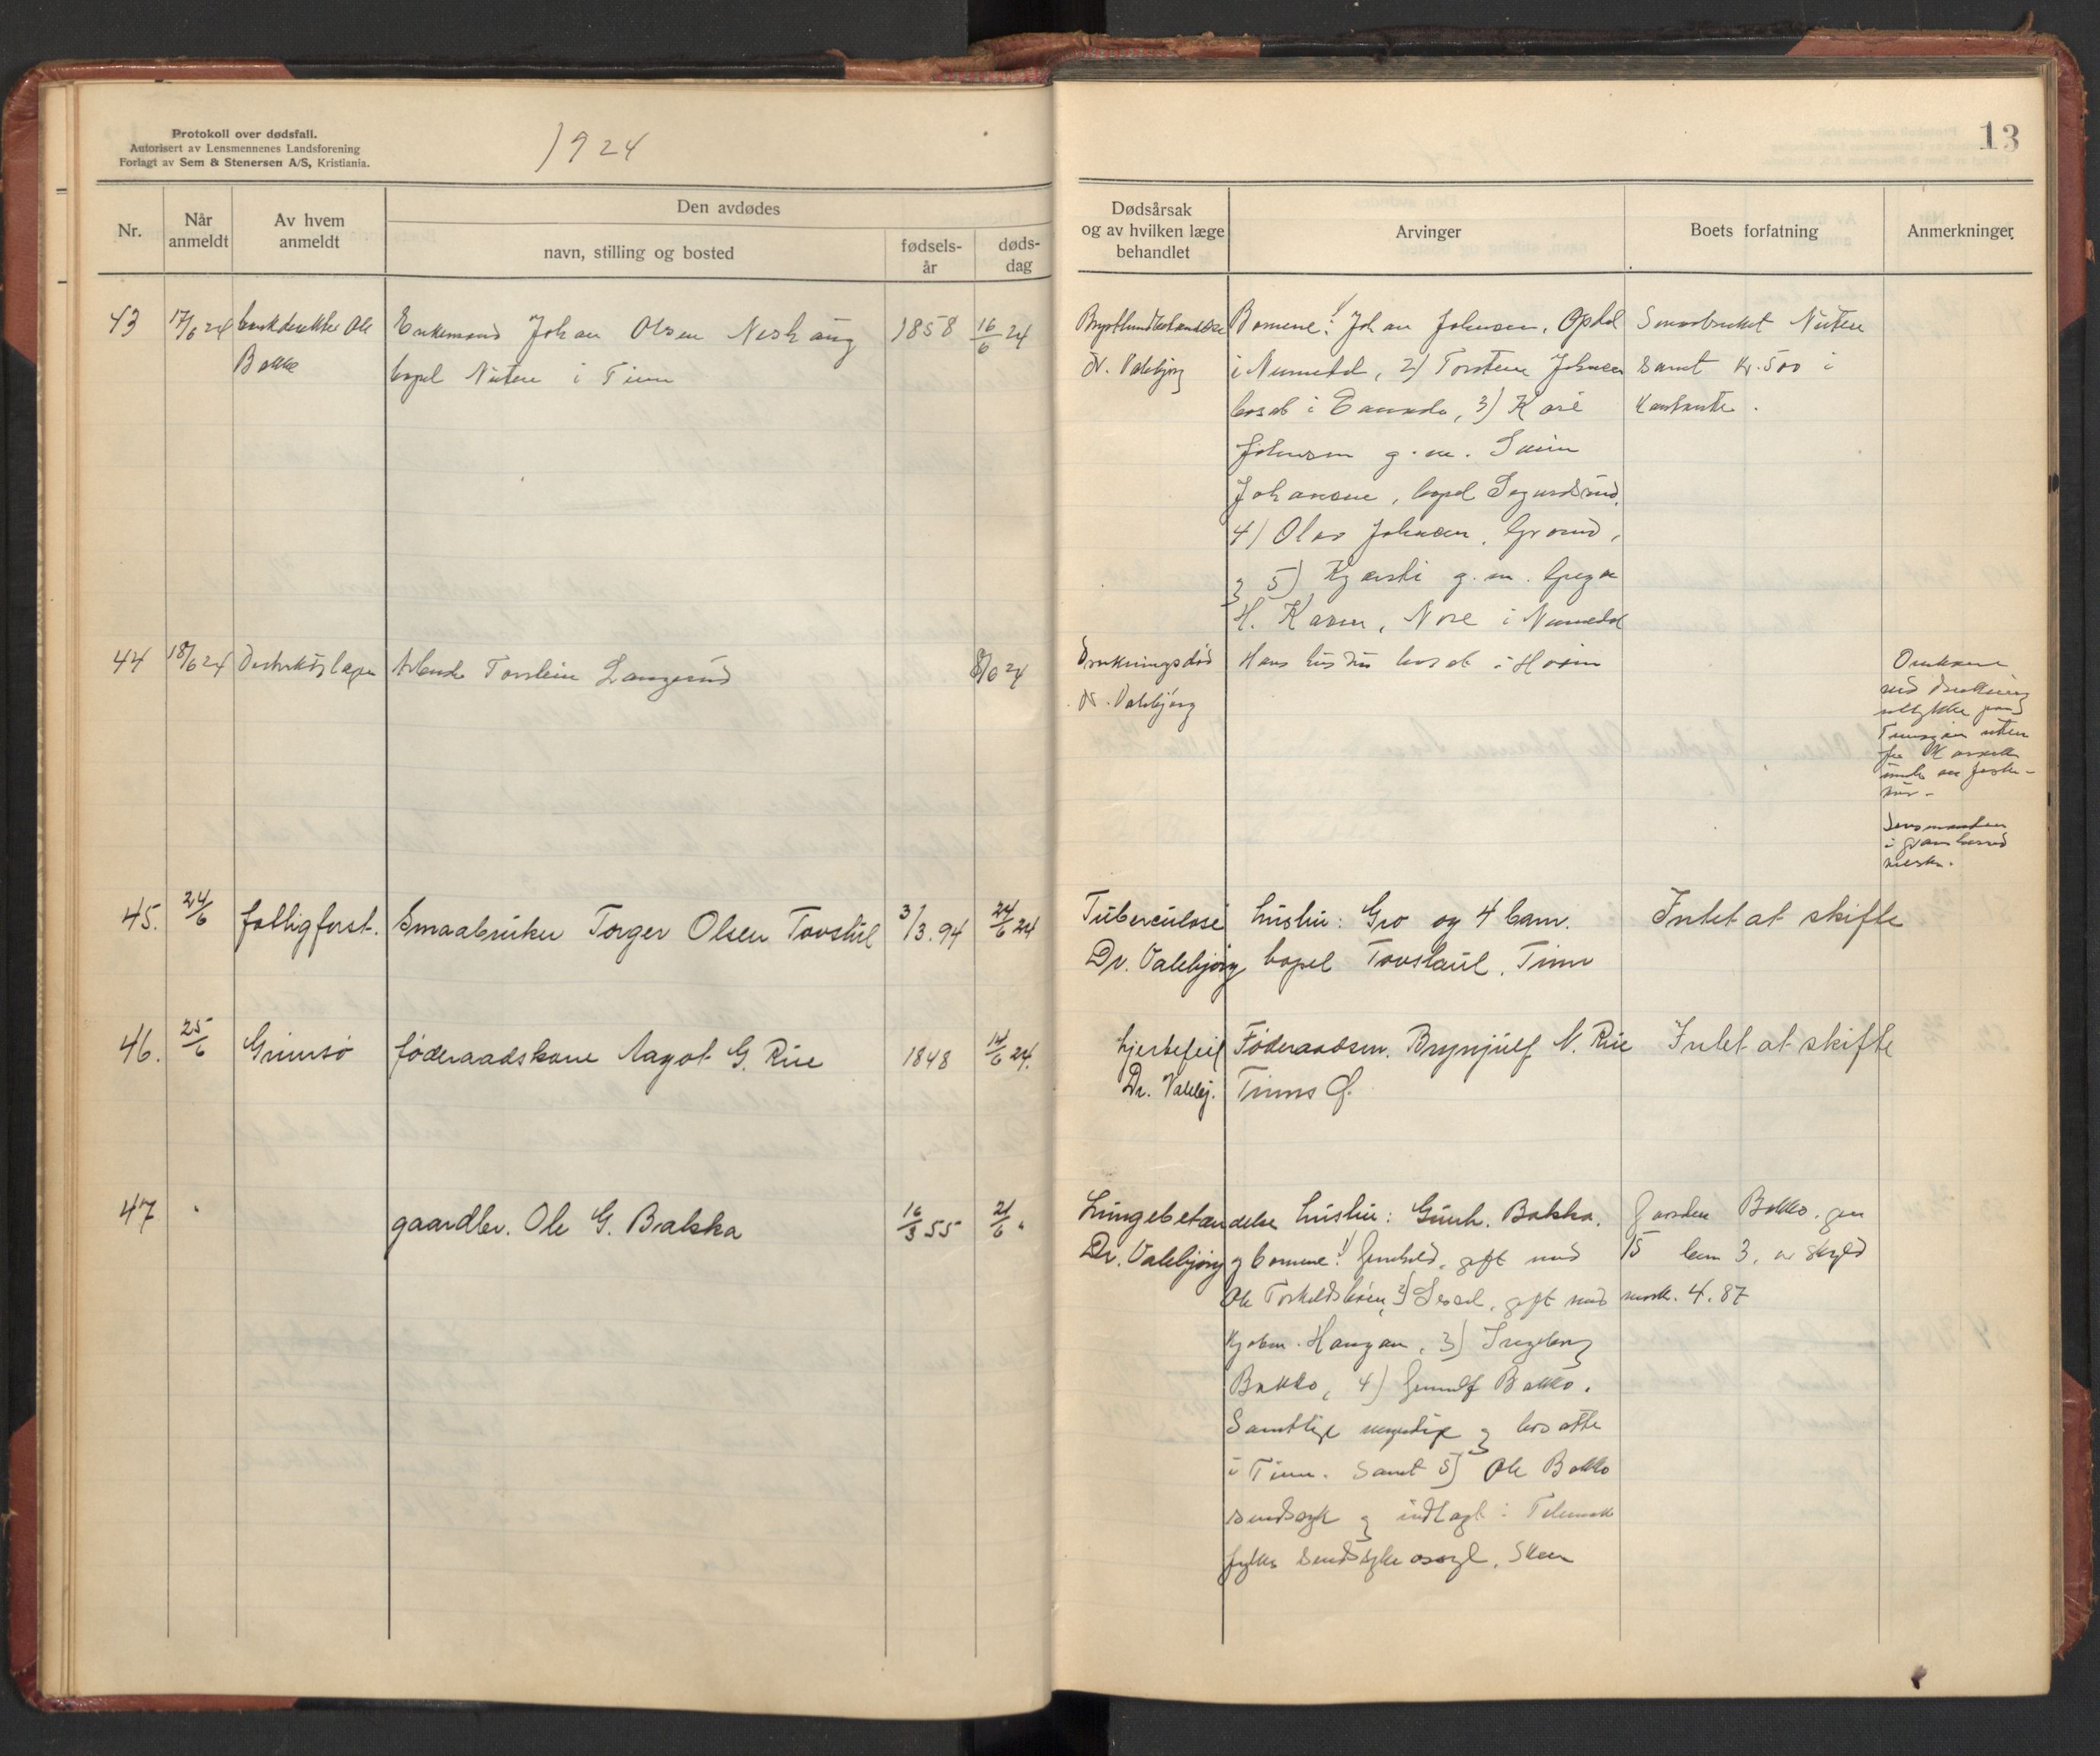 Protokoll over dødsfall.
Autorisert av Lensmennenes Landsforening
Forlagt av Sem & Stenersen A/S, Kristiania.
1924
Nr.
Når anmeldt
Av hvem anmeldt
Den avdødes
navn, stilling og bosted
fødsels-år
døds-dag
43
17/6 24
Ole
Bakke
Enkemand Johan Olsen
bopel Nuten i Tinn
1858
16/6 24
44
18/6 24
Distriktslægen
Torstein Langerud
8/6 24
45.
24/6
fattigforst.
Smaabruker Torger Olsen Tovstul
3/3. 94
24/6 24
46.
25/6
Grimsø
føderaadskone Aagot G. Rue
1848
14/6 24.
47
gaardbr. Ole G. Bakka
16/3 55
21/6 "
13
Dødsårsak
og av hvilken læge
behandlet
Arvinger
Boets forfatning
Anmerkninger
Brysthindebetændelse
Dr. Valebjørg
Børnene: 1) Johan Johnsen, Opdal
i Numedal, 2) Torstein Johnsen
bosat i Canada, 3) Kari
Johnsen g. m. Svein
Johansen, bopel Sigurdsrud,
4) Olav Johnsen,
og 5) Kjersti g. m.
H. Kåsen, Nore i Numedal
Smaabruket Nuten
samt kr. 500 i
kontanter.
Drukningsdød
Dr. Valebjørg
Hans hustru bosat i Hovin
Omkom
ved drukning
ulykke paa
Tinnsjøen uten
for
Lensmanden
i Gransherred
Tuberculose
Dr. Valebjørg
hustru: Gro og 4 barn.
bopel Tovstaul, Tinn
Intet at skifte
hjertefeil
Dr. Valebj.
Føderaadsm. Brynjulf N. Rue
Tinns Ø.
Intet at skifte
Lungebetændelse
Dr. Valebjørg
hustru: Gunh. Bakka.
og børnene: 1) Gunhild, gift med
Ole Torkildsbøen, 2) Sissel, gift med
Kjøbm. Haugan, 3) Ingeborg
Bakko, 4) Gunulf Bakko.
Samtlige myndige og bosatte
i Tinn. Samt 5) Ole Bakko
sindssyk og indlagt i Telemark
fylkes sindssykeasyl, Skien
Gaarden Bakko, gnr
15 bnr 3, av skyld
mark. 4.87